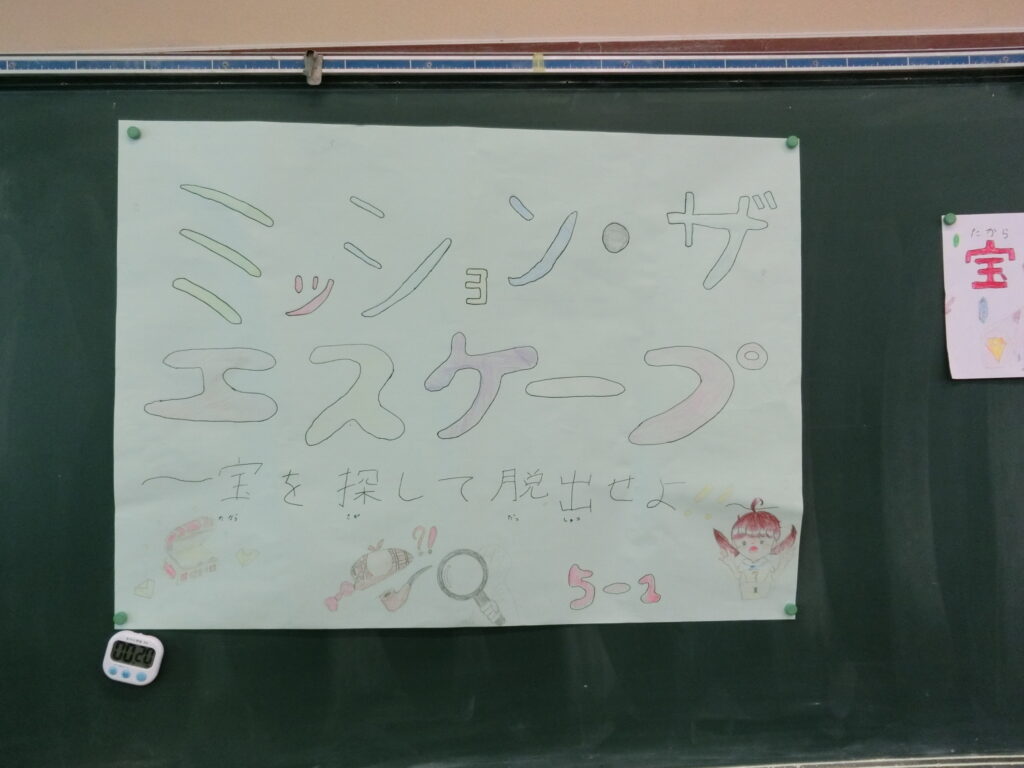 ミッション・ザ
エスケープ
~宝を探して脱出せよ!!~
たから さが だっ しゅつ
!?
5-2
たから
宝
00 20